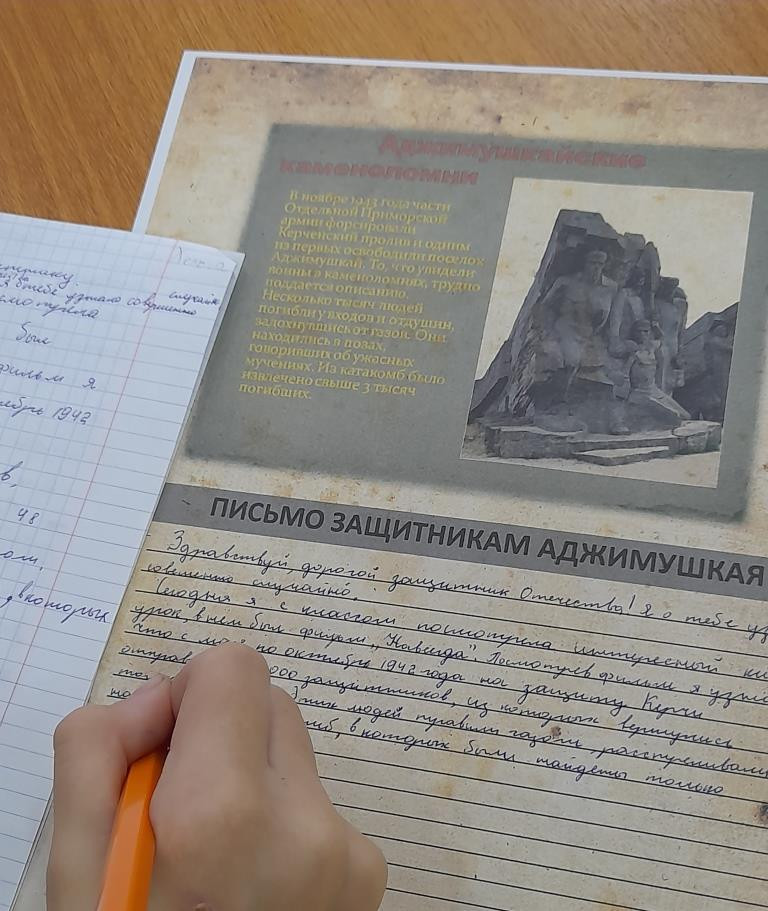 Аджимушкайские
каменоломни
В ноябре 1943 года части
Отдельной Приморской
армии форсировали
Керченский пролив и одним
из первых освободили поселок
Аджимушкай. То, что увидели
воины в каменоломнях, трудно
поддается описанию.
Несколько тысяч людей
погибли у входов и отдушин,
задохнувшись от газов. Они
находились в позах,
говоривших об ужасных
мучениях. Из катакомб было
извлечено свыше 3 тысяч
погибших.
ПИСЬМО ЗАЩИТНИКАМ АДЖИМУШКАЯ
Здравствуй дорогой защитник Отечества! Я о тебе уз
совешенно случайно.
Сегодня я с классом посмотрела интересный ки
урок, в нём был фильм „Навсегда". Посмотрев фильм я узна
что с мая по октябрь 1942 года на защиту Керчи
отправ 000 защитников, из которых вернулись
то
на Этих людей травили газом, расстреливали
иб, в которых были найдены только
тебе узнала совершенно случайно
смотрела
был
фильм я
ябрь 1942
в,
48
ом,
в которых